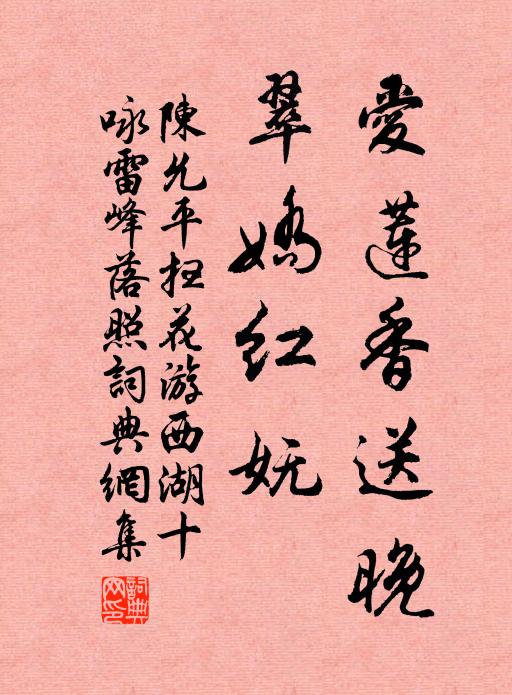 愛蓮香送晚
翠嬌紅妩
陳允平扫花游西湖十
咏雷峰落照詞典網集
詞典网